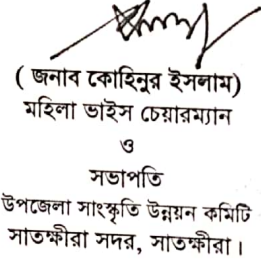 ( জনাব কোহিনুর ইসলাম)
মহিলা ভাইস চেয়ারম্যান
ও
সভাপতি
উপজেলা সাংস্কৃতি উন্নয়ন কমিটি
সাতক্ষীরা সদর, সাতক্ষীরা।